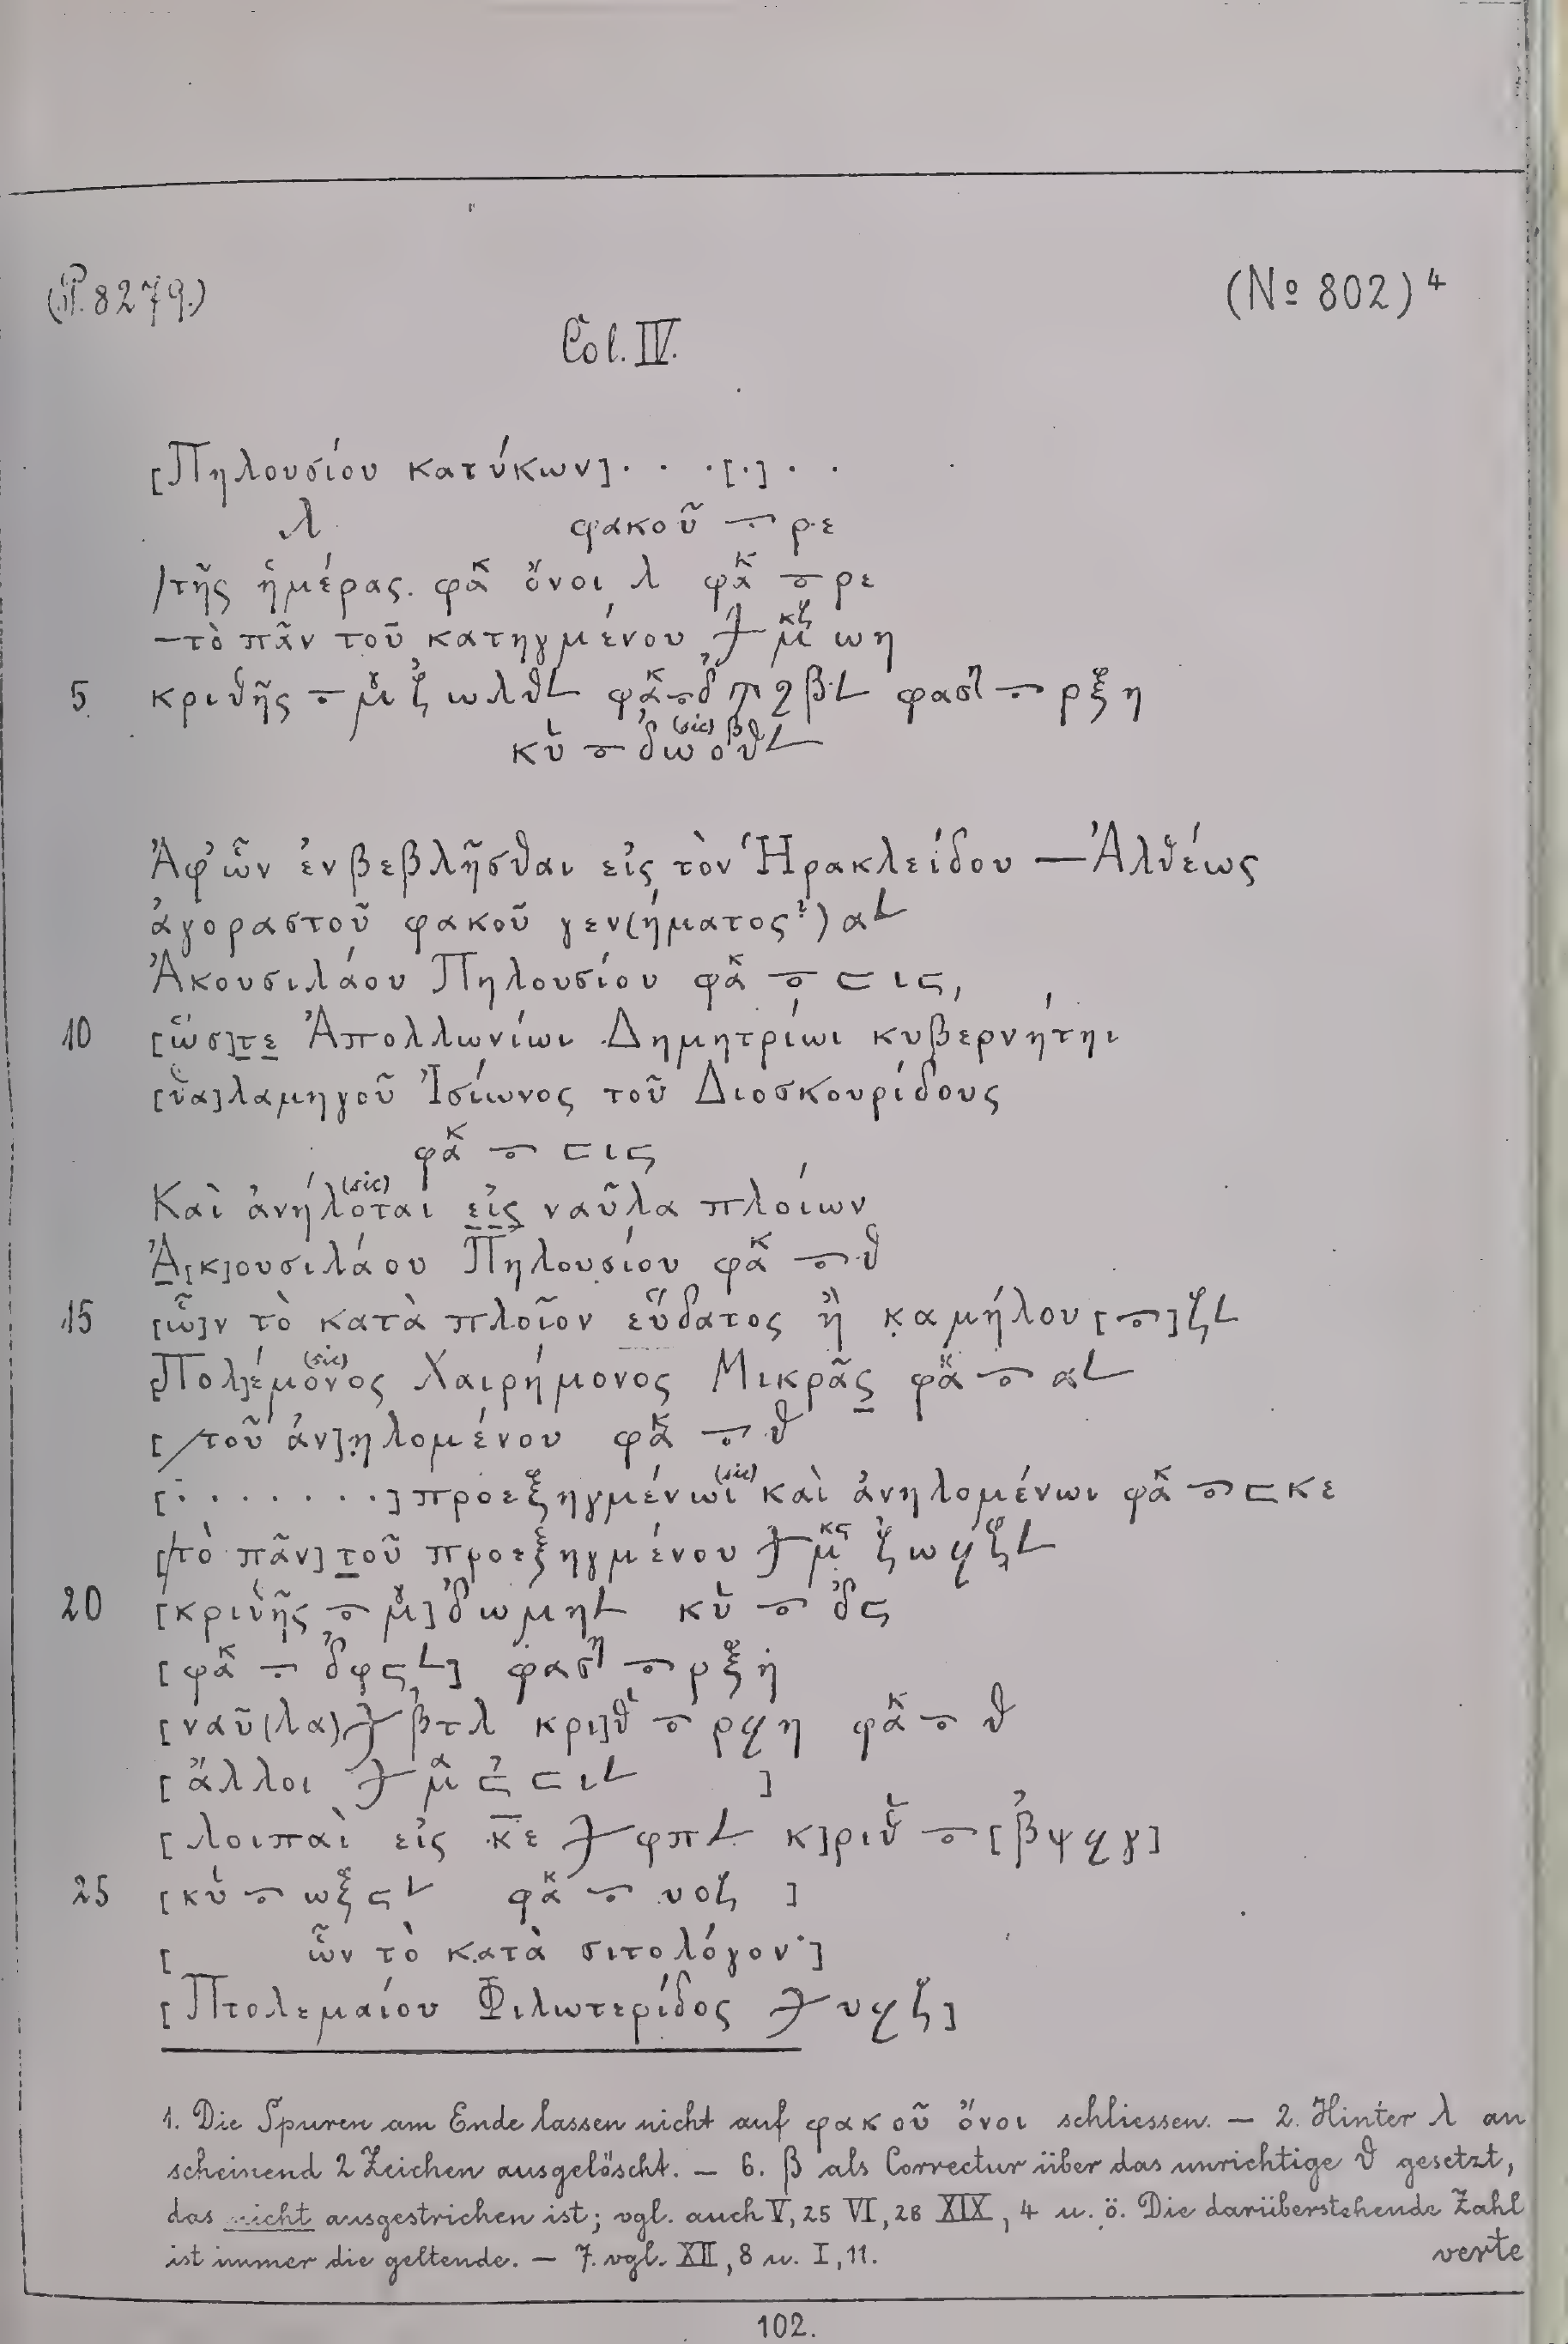 (P. 8279.)
(No 802)⁴
Col. IV.
[Πηλουσίου κατύκων]. . .[.]. .
λ φακοῦ ⨪ ρε
/τῆς ἡμέρας. φακ ὄνοι λ φακ ⨪ ρε
—τὸ πᾶν τοῦ κατηγμένου μκζ ωη
5 κριθῆς ⨪ μγ ζ ωλθL φακ ⨪ δ βL φασηλ ⨪ ρξη
κυ ⨪ δω (sic) οθβL
Ἀφ' ὧν ἐνβεβλῆσθαι εἰς τὸν Ἡρακλείδου — Ἀλθέως
ἀγοραστοῦ φακοῦ γεν(ήματος?) αL
Ἀκουσιλάου Πηλουσίου φακ ⨪ ⊏ ις,
10 [ὥσ]τε Ἀπολλωνίωι Δημητρίωι κυβερνήτηι
[θα]λαμηγοῦ Ἰσίωνος τοῦ Διοσκουρίδους
φακ ⨪ ⊏ ις
Καὶ ἀνήλοται (sic) εἰς ναῦλα πλοίων
Ἀ[κ]ουσιλάου Πηλουσίου φακ ⨪ θ
15 [ὧ]ν τὸ κατὰ πλοῖον εὕδατος ἢ καμήλου [⨪] ζL
[Πολ]έμονος (sic) Χαιρήμονος Μικρᾶς φακ ⨪ αL
[/τοῦ ἀν]ηλομένου φακ ⨪ θ
[. . . . . . . .] προεξηγμένωι (sic) καὶ ἀνηλομένωι φακ ⨪ ⊏ κε
[/τὸ πᾶν] τοῦ προεξηγμένου μκς ζωϥζL
20 [κριθῆς ⨪ μγ] δωμηL κυ ⨪ δς
[φακ ⨪ δφςL] φασηλ ⨪ ρξη
[ναῦ(λα) βτλ κρι]θ ⨪ ρϥη φακ ⨪ θ
[ἄλλοι μα ς ⊏ ιL ]
[λοιπαὶ εἰς κε φπL κ]ριθ ⨪ [βψϥγ]
25 [κυ ⨪ ωξςL φακ ⨪ υοζ ]
[ ὧν τὸ κατὰ σιτολόγον·]
[Πτολεμαίου Φιλωτερίδος υϥζ]
1. Die Spuren am Ende lassen nicht auf φακοῦ ὄνοι schliessen. — 2. Hinter λ an
scheinend 2 Zeichen ausgelöscht. — 6. β als Correctur über das unrichtige θ gesetzt,
das nicht ausgestrichen ist; vgl. auch V, 25 VI, 28 XIX, 4 u. ö. Die darüberstehende Zahl
ist immer die geltende. — 7. vgl. XII, 8 u. I, 11.
verte
102.